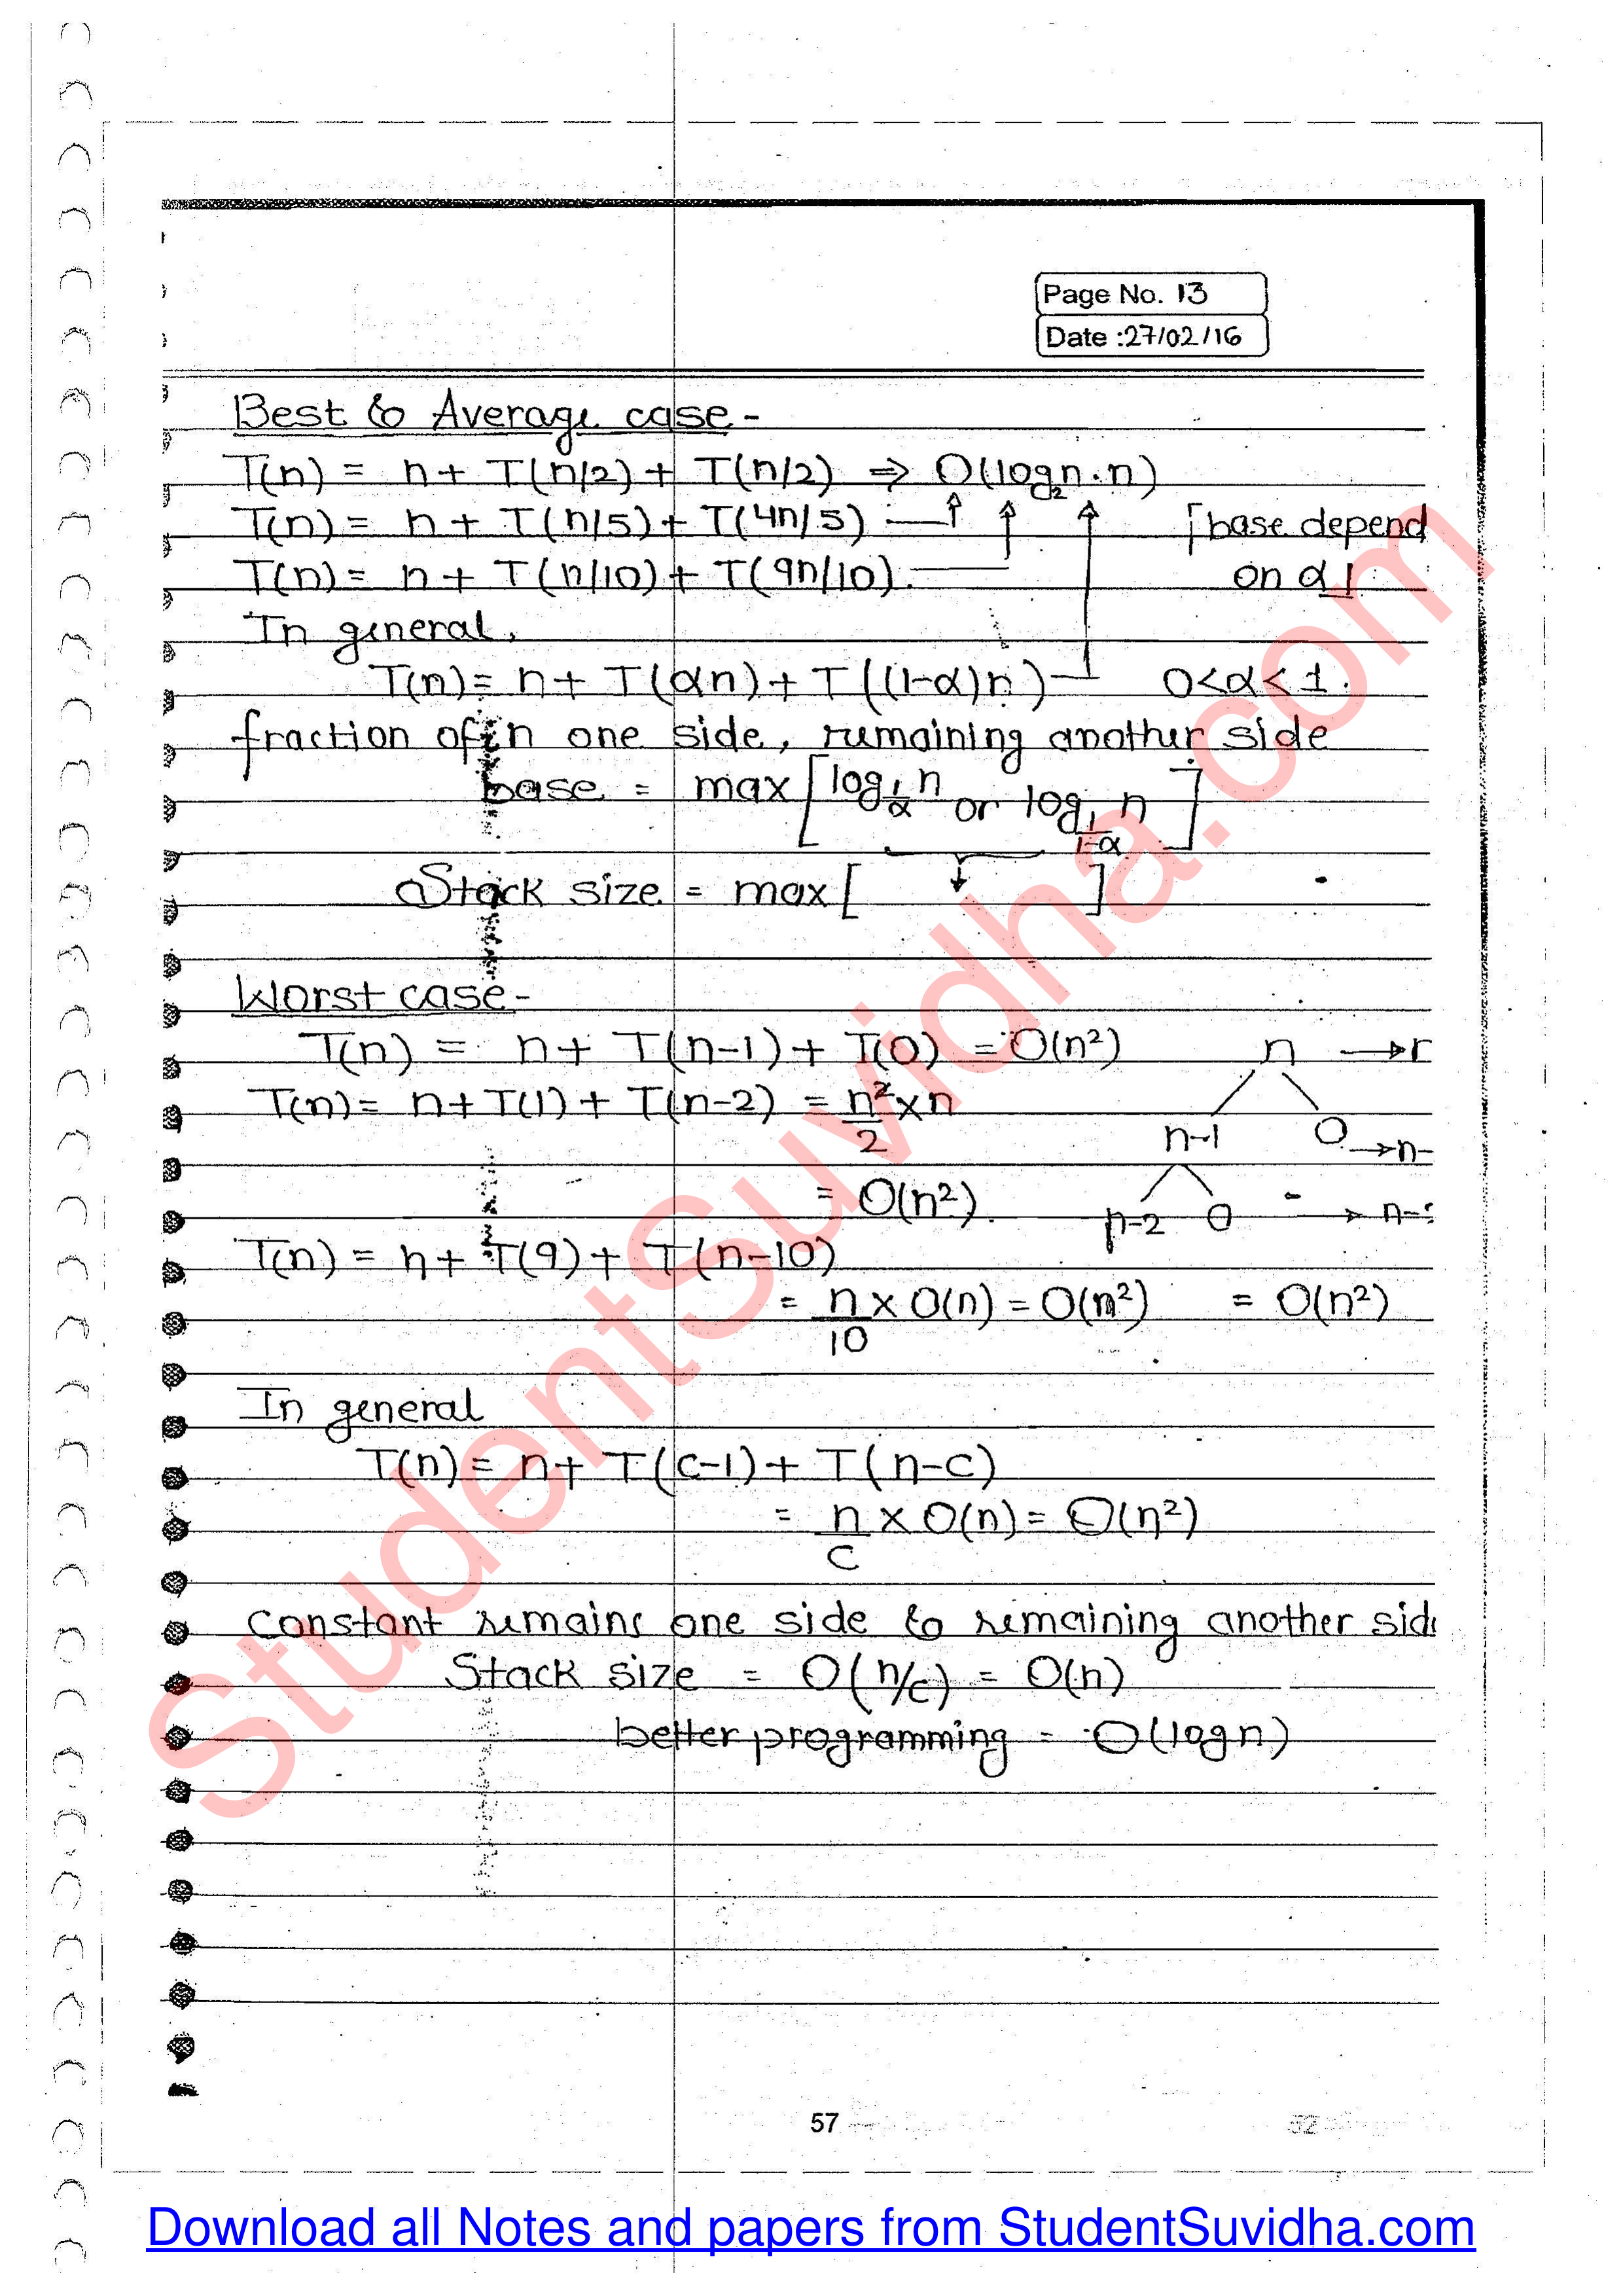 Page No. 13
Date : 27/02/16
Best & Average case -
T(n) = n + T(n/2) + T(n/2) ⇒ O(log₂n . n)
T(n) = n + T(n/5) + T(4n/5) [base depend
T(n) = n + T(n/10) + T(9n/10). on α]
In general,
T(n) = n + T(αn) + T((1-α)n) 0<α<1.
fraction of n one side, remaining another side
base = max [log_{1/α} n or log_{1/(1-α)} n]
Stack size = max [ ↓ ]
Worst case -
T(n) = n + T(n-1) + T(0) = O(n²) n →
T(n) = n + T(1) + T(n-2) = n²/2 × n
n-1 0 → n-
= O(n²). n-2 0 - → n-
T(n) = n + T(9) + T(n-10)
= n/10 × O(n) = O(n²) = O(n²)
In general
T(n) = n + T(c-1) + T(n-c)
= n/c × O(n) = O(n²)
constant remains one side & remaining another side
Stack size = O(n/c) = O(n)
better programming = O(log n)
57
Download all Notes and papers from StudentSuvidha.com
StudentSuvidha.com